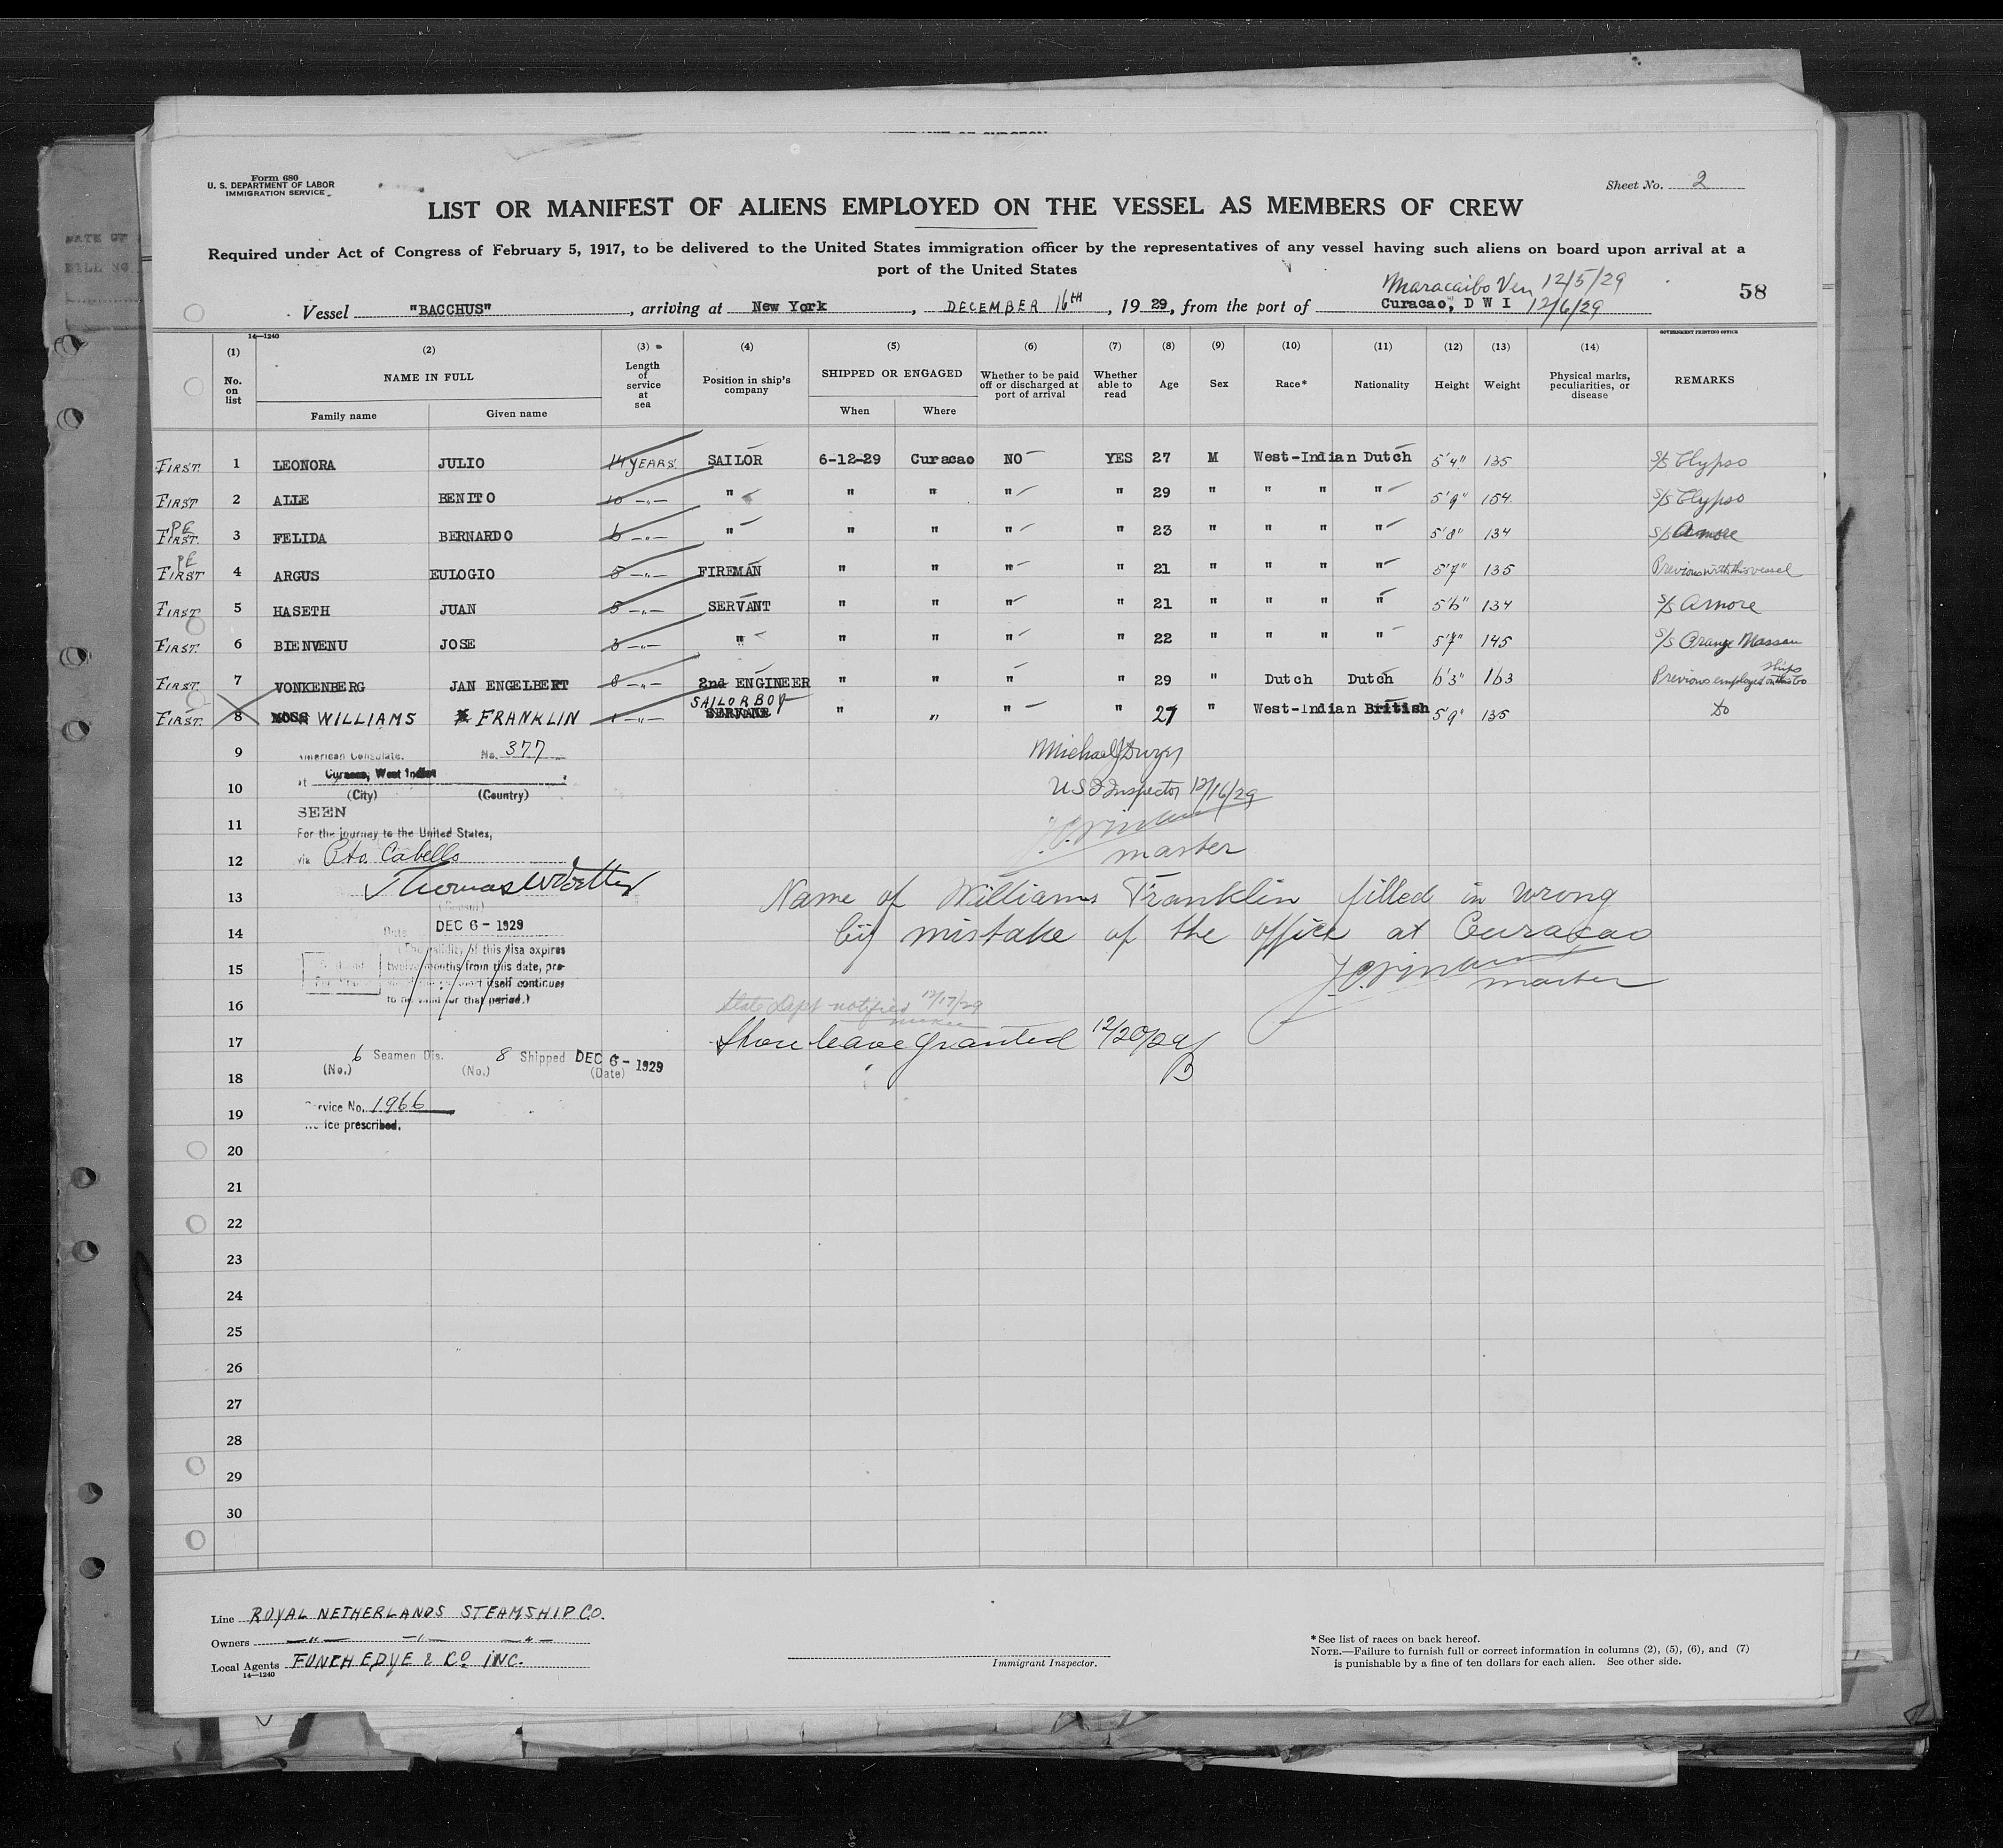 Form 680
U. S. DEPARTMENT OF LABOR
IMMIGRATION SERVICE
Sheet No. 2
LIST OR MANIFEST OF ALIENS EMPLOYED ON THE VESSEL AS MEMBERS OF CREW
Required under Act of Congress of February 5, 1917, to be delivered to the United States immigration officer by the representatives of any vessel having such aliens on board upon arrival at a
port of the United States
Maracaibo Ven 12/5/29
58
Vessel "BACCHUS", arriving at New York, DECEMBER 16th, 1929, from the port of Curacao, D W I 12/6/29
14—1240
GOVERNMENT PRINTING OFFICE
(1) (2) (3) (4) (5) (6) (7) (8) (9) (10) (11) (12) (13) (14)
No. on list NAME IN FULL Family name Given name Length of service at sea Position in ship's company SHIPPED OR ENGAGED When Where Whether to be paid off or discharged at port of arrival Whether able to read Age Sex Race* Nationality Height Weight Physical marks, peculiarities, or disease REMARKS
FIRST. 1 LEONORA JULIO 14 YEARS. SAILOR 6-12-29 Curacao NO YES 27 M West-Indian Dutch 5'4" 135 S/S Clypso
FIRST 2 ALLE BENITO 10 —"— " " " " " 29 " " " " 5'9" 154 S/S Clypso
PE FIRST. 3 FELIDA BERNARDO 6 —"— " " " " " 23 " " " " 5'8" 134 S/S Amore
PE FIRST 4 ARGUS EULOGIO 5 —"— FIREMAN " " " " 21 " " " " 5'7" 135 Previous with this vessel
FIRST 5 HASETH JUAN 5 —"— SERVANT " " " " 21 " " " " 5'6" 134 S/S Amore
FIRST. 6 BIENVENU JOSE 3 —"— " " " " " 22 " " " " 5'7" 145 S/S Orange Nassau
FIRST. 7 VONKENBERG JAN ENGELBERT 8 —"— 2nd ENGINEER " " " " 29 " Dutch Dutch 6'3" 163 Previous employed on this Co ships
FIRST. 8 MOSS WILLIAMS FRANKLIN 1 —"— SAILORBOY SERVANT " " " " 27 " West-Indian British 5'9" 135 Do
9
10
11
12
13
14
15
16
17
18
19
20
21
22
23
24
25
26
27
28
29
30
American Consulate. No. 377
at Curacao, West Indies
(City) (Country)
SEEN
For the journey to the United States,
via Pto. Cabello
DEC 6 - 1929
Date
(The validity of this visa expires
twelve months from this date, pro-
itself continues
to be valid for that period.)
6 Seamen Dis. 8 Shipped DEC 6 - 1929
(No.) (No.) (Date)
Service No. 1966
ice prescribed.
Michael J Dwyer
U S I Inspector 12/16/29
master
Name of Williams Franklin filled in wrong
by mistake of the office at Curacao
master
State Dept notified 12/17/29
Shore leave granted 12/20/29
B
Line ROYAL NETHERLANDS STEAMSHIP CO.
Owners —"— —"— —"—
Local Agents FUNCH EDYE & CO. INC.
14—1240
Immigrant Inspector.
* See list of races on back hereof.
NOTE.—Failure to furnish full or correct information in columns (2), (5), (6), and (7)
is punishable by a fine of ten dollars for each alien. See other side.